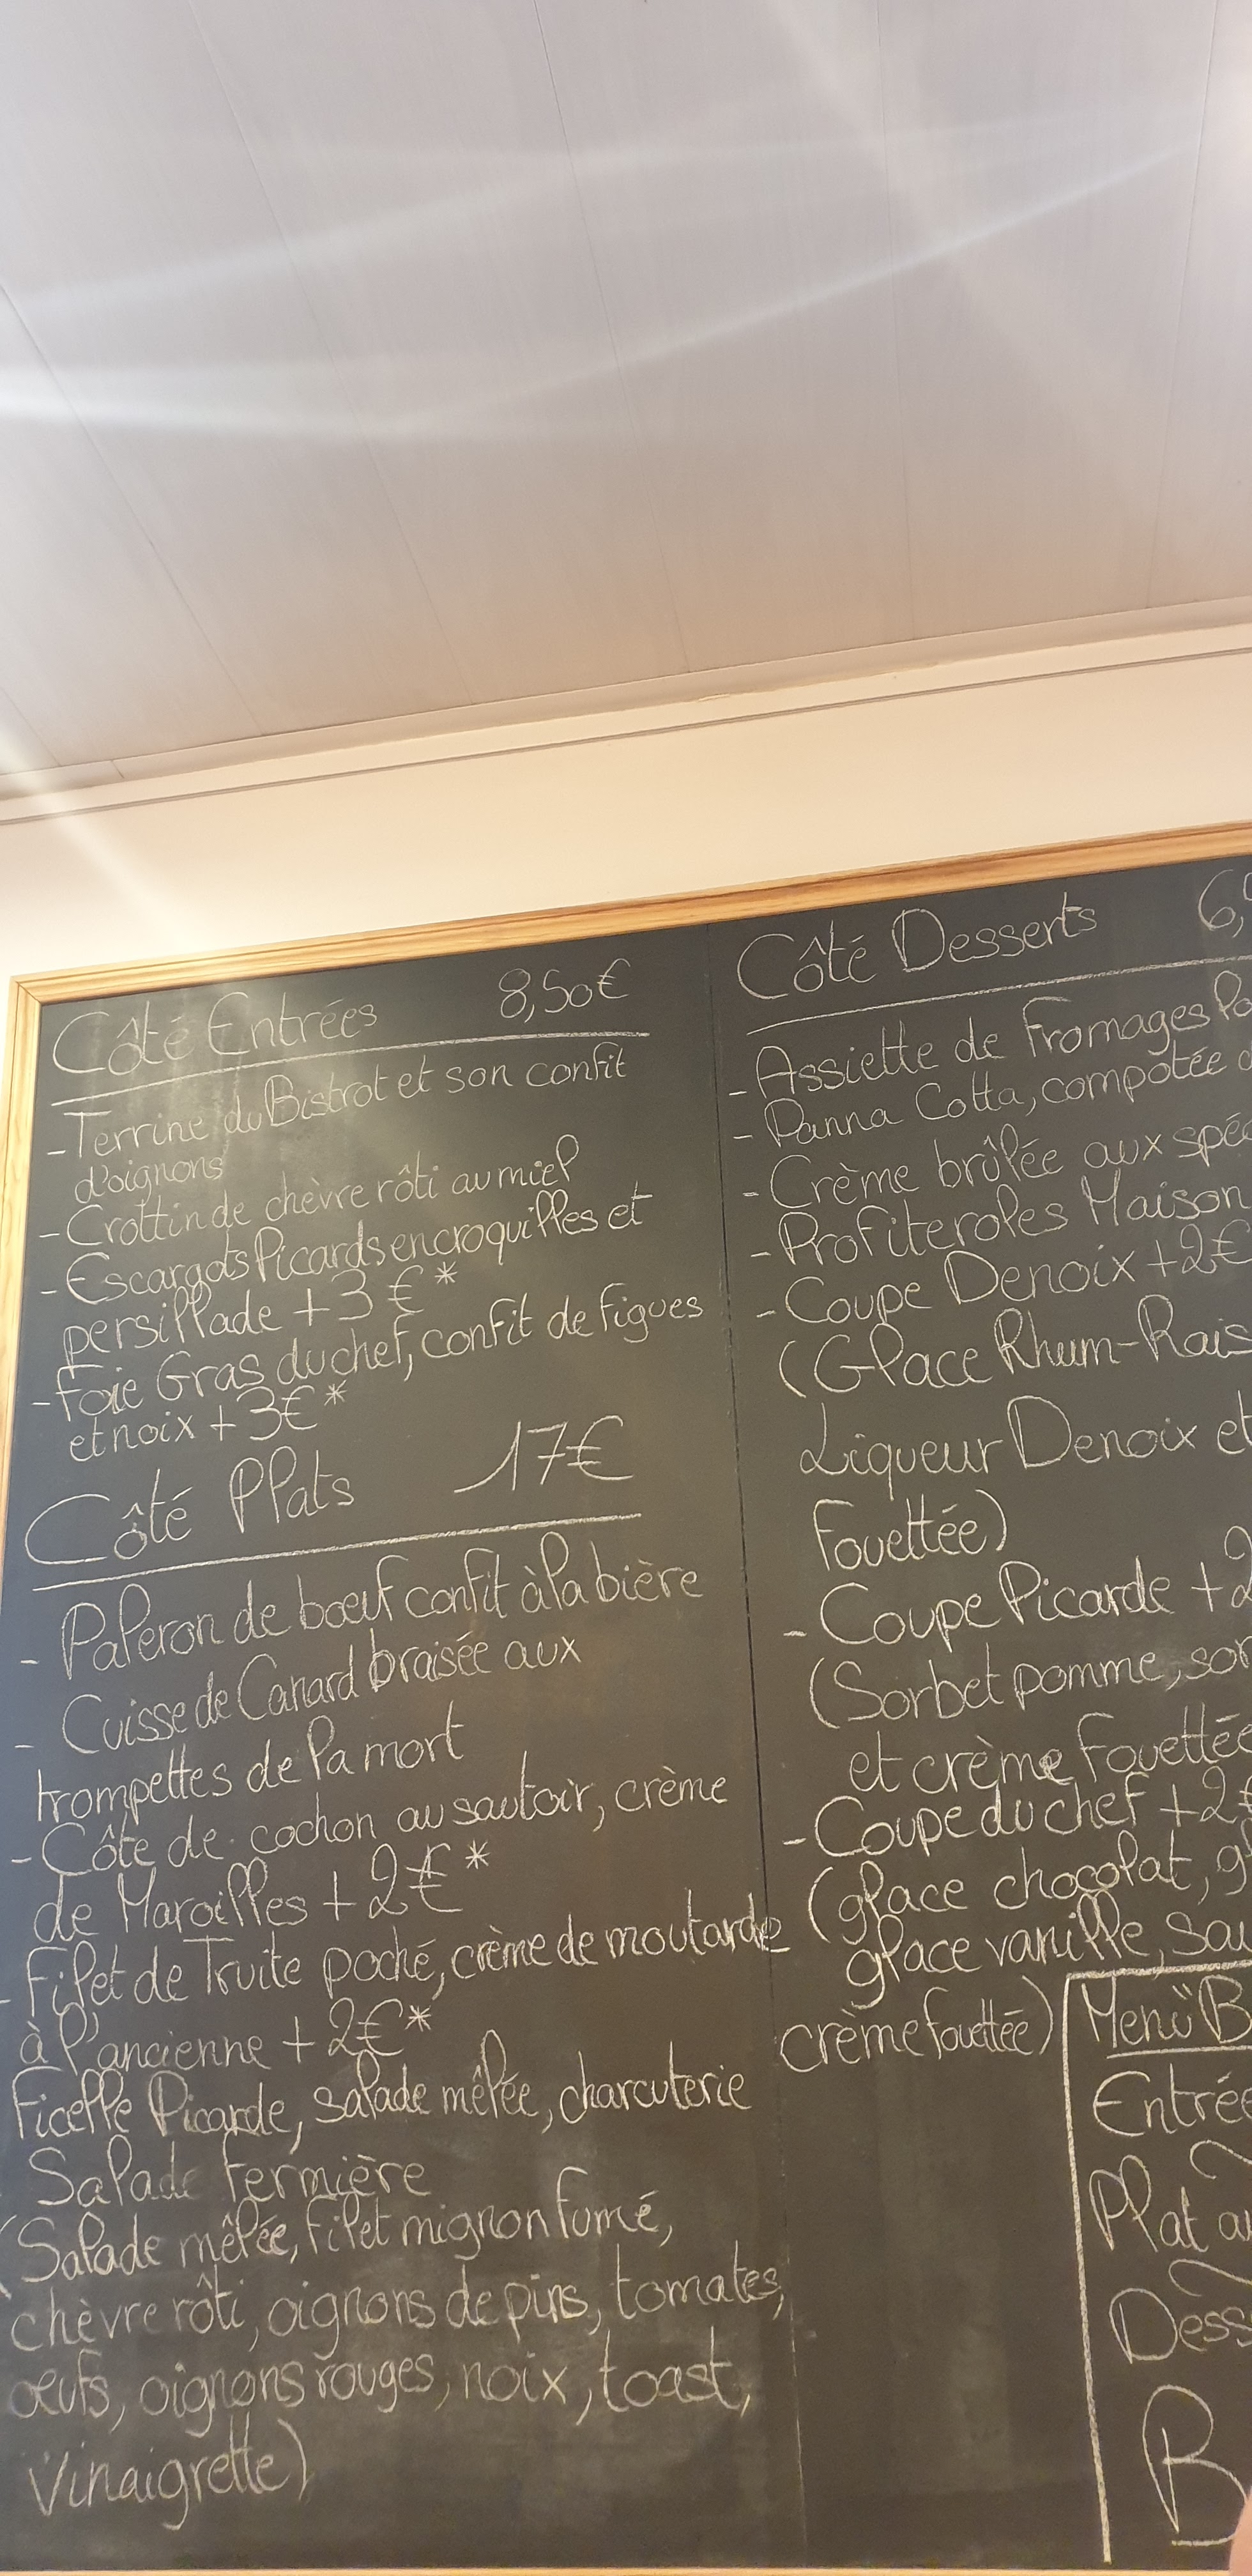 Côté Entrées 8,50€
- Terrine du Bistrot et son confit
d'oignons
- Crottin de chèvre rôti au miel
- Escargots Picards en croquilles et
persillade +3€*
- Foie Gras du chef, confit de figues
et noix +3€*
Côté Plats 17€
- Paleron de bœuf confit à la bière
- Cuisse de Canard braisée aux
trompettes de la mort
- Côte de cochon au sautoir, crème
de Maroilles +2€*
- Filet de Truite poché, crème de moutarde
à l'ancienne +2€*
Ficelle Picarde, salade mêlée, charcuterie
Salade Fermière
(Salade mêlée, filet mignon fumé,
chèvre rôti, oignons de pins, tomates,
œufs, oignons rouges, noix, toast,
vinaigrette)
Côté Desserts 6,
- Assiette de Fromages
- Panna Cotta, compotée
- Crème brûlée aux
- Profiteroles Maison
- Coupe Denoix +2€
(Glace Rhum-Rais
Liqueur Denoix et
Fouettée)
- Coupe Picarde +2
(Sorbet pomme,
et crème Fouettée
- Coupe du chef +2€
(glace chocolat,
glace vanille,
crème fouettée)
Menu "B
Entrée
Plat
Dess
B